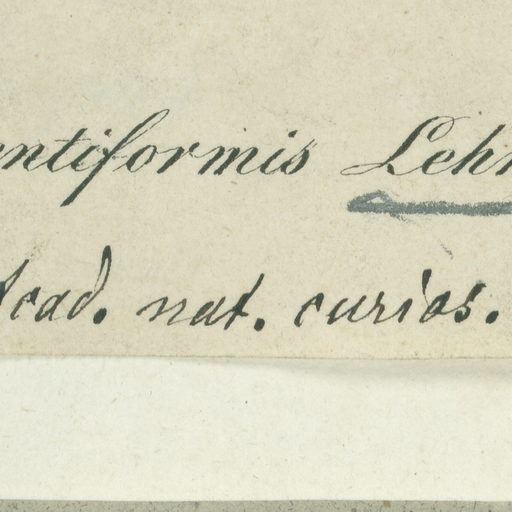 entiformis Lehm
Acad. nat. curios.